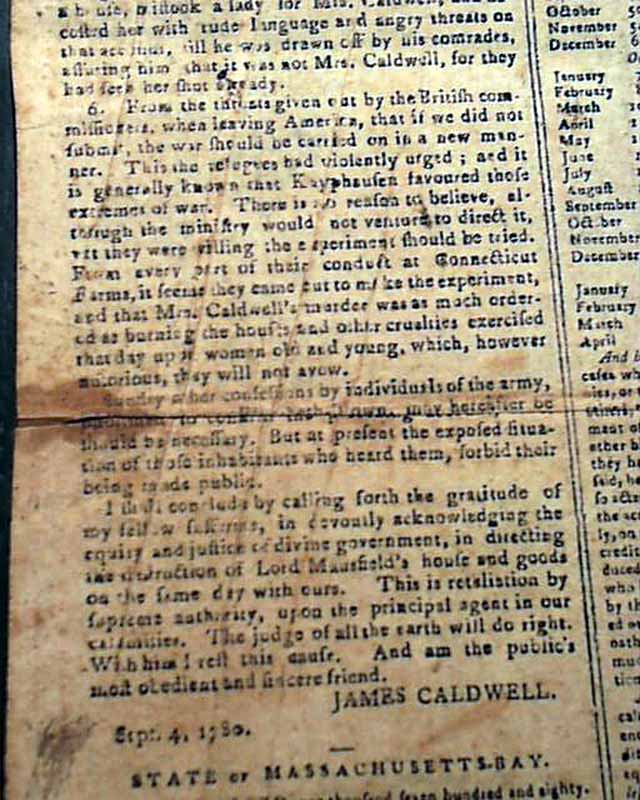 a house, mistook a lady for Mrs. Caldwell, and
costed her with rude language and angry threats on
that account, till he was drawn off by his comrades,
assuring him that it was not Mrs. Caldwell, for they
had seen her shot already.
6. From the threats given out by the British com-
missioners, when leaving America, that if we did not
submit, the war should be carried on in a new man-
ner. This the refugees had violently urged; and it
is generally known that Knyphausen favoured those
extremes of war. There is no reason to believe, al-
though the ministry would not venture to direct it,
yet they were willing the experiment should be tried.
From every part of their conduct at Connecticut
Farms, it seems they came out to make the experiment,
and that Mrs. Caldwell's murder was as much order-
ed as burning the houses and other cruelties exercised
that day upon women old and young, which, however
notorious, they will not avow.
Sundry other confessions by individuals of the army,
to confirm may hereafter be
should be necessary. But at present the exposed situa-
tion of those inhabitants who heard them, forbid their
being made public.
I shall conclude by calling forth the gratitude of
my fellow sufferers, in devoutly acknowledging the
equity and justice of divine government, in directing
the destruction of Lord Mansfield's house and goods
on the same day with ours. This is retaliation by
supreme authority, upon the principal agent in our
calamities. The judge of all the earth will do right.
With him I rest this cause. And am the public's
most obedient and sincere friend.
JAMES CALDWELL.
Sept. 4, 1780.
STATE of MASSACHUSETTS-BAY.
thousand seven hundred and eighty.
October
November
December
January
February
March
April
May
June
July
August
September
October
November
December
January
February
March
April
And
cases
ment of
other
they
said, he
so
the
ly, on
credit
duced
who
by
ed
oath